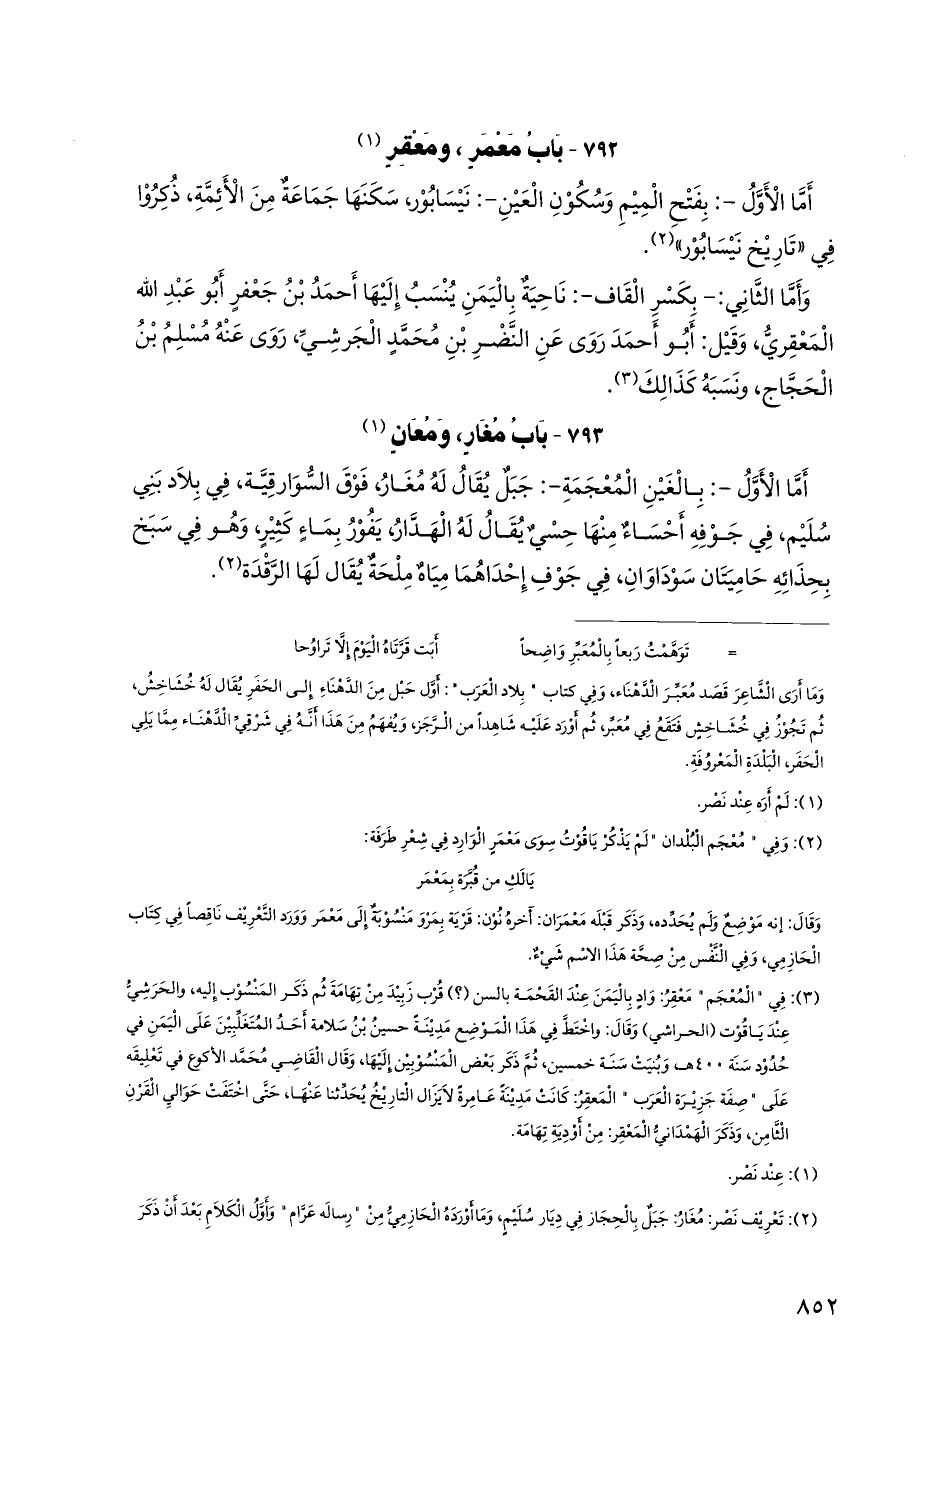 ٧٩٢ - بَابُ مَعْمَرٍ ، ومَعْقِرٍ (١)
أَمَّا الْأَوَّلُ -: بِفَتْحِ الْمِيْمِ وَسُكُوْنِ الْعَيْنِ-: نَيْسَابُوْر، سَكَنَهَا جَمَاعَةٌ مِنَ الْأَئِمَّةِ، ذُكِرُوْا
فِي «تَارِيْخِ نَيْسَابُوْر»(٢).
وَأَمَّا الثَّانِي:- بِكَسْرِ الْقَاف-: نَاحِيَةٌ بِالْيَمَنِ يُنْسَبُ إِلَيْهَا أَحمَدُ بْنُ جَعْفرٍ أَبُو عَبْدِ الله
الْمَعْقِرِيُّ، وَقَيْل: أَبُو أَحمَدَ رَوَى عَنِ النَّضْرِ بْنِ مُحَمَّدٍ الْجَرشِيِّ، رَوَى عَنْهُ مُسْلِمُ بْنُ
الْحَجَّاجِ، ونَسَبَهُ كَذَالِكَ(٣).
٧٩٣ - بَابُ مُغَارٍ، وَمُعَانٍ (١)
أَمَّا الْأَوَّلُ -: بِالْغَيْنِ الْمُعْجَمَةِ-: جَبَلٌ يُقَالُ لَهُ مُغَارُ، فَوْقَ السُّوَارِقِيَّة، فِي بِلاَد بَنِي
سُلَيْم، فِي جَوْفِهِ أَحْسَاءٌ مِنْهَا حِسْيٌ يُقَالُ لَهُ الْهَدَّارُ، يَفُوْرُ بِمَاءٍ كَثِيْرٍ، وَهُو فِي سَبَخ
بِحِذَائِهِ حَامِيَتَان سَوْدَاوَانِ، فِي جَوْفِ إِحْدَاهُمَا مِيَاهٌ مِلْحَةٌ يُقَال لَهَا الرَّفْدَة(٢).
= تَوَهَّمْتُ رَبعاً بِالْمُعَبِّرِ وَاضِحاً أَبَت قَرَّتَاهُ الْيَوْمَ إِلَّا تَراوُحا
وَمَا أَرَى الشَّاعِرَ قَصَد مُعَبِّرَ الدَّهْنَاء، وَفِي كتاب " بِلاد الْعَرَب": أَوَّل حَبْل مِنَ الدَّهْنَاءِ إِلى الحَفَرِ يُقَال لَهُ خُشَاخِشُ،
ثُم تَجُوْزُ فِي خُشَاخِشٍ فَتَقَعُ فِي مُعَبِّر، ثُم أَوْرَد عَلَيْه شَاهِداً من الرَّجَز، وَيُفهَمُ مِنَ هَذَا أَنَّهُ فِي شَرْقِيِّ الدَّهْنَاء مِمَّا يَلِي
الْحَفَر، الْبَلْدَةِ الْمَعْرُوفَةِ.
(١): لَمْ أَرَه عِنْد نَصْر.
(٢): وَفِي " مُعْجَم الْبُلْدان "لَمْ يَذْكُرْ يَاقُوْتُ سِوَى مَعْمَرٍ الْوَارِد فِي شِعْرِ طَرَفَة:
يَالَكِ من قُبَّرَة بِمَعْمَر
وَقَالَ: إنه مَوْضِعٌ وَلَم يُحَدِّده، وَذَكَر قَبْلَه مَعْمَرَان: أَخرهُ نُوْن: قَرْيَة بِمَرْوَ مَنْسُوْبَةٌ إِلَى مَعْمَر وَوَرَد التَّعْرِيْف نَاقِصاً فِي كِتَاب
الْحَازِمِي، وَفِي النَّفْس مِنْ صِحَّة هَذَا الاسْم شَيْءٌ.
(٣): فِي "الْمُعْجَم" مَعْقِرُ: وَادٍ بِالْيَمَنِ عِنْدَ القَحْمَة بالسن (؟) قُرْب زَبِيْدَ مِنْ تِهَامَةَ ثُم ذَكَر المَنْسُوْب إليه، والحَرَشِيُّ
عِنْدَ يَاقُوْت (الحراشي) وَقَالَ: واخْتَطَّ فِي هَذَا الْمَوْضِع مَدِيْنَةً حسينُ بْنُ سَلامة أَحَدُ المُتَغَلِّبِيْنَ عَلَى الْيَمَنِ في
حُدُوْد سَنَة ٤٠٠هـ، وَبُنِيَتْ سَنَة خمسين، ثُمَّ ذَكَر بَعْض الْمَنْسُوْبِيْن إِلَيْهَا، وَقَال الْقَاضِي مُحَمَّد الأكوع في تَعْلِيقه
عَلَى "صِفَة جَزِيْرَة الْعَرَب " الْمَعقِرُ: كَانَتْ مَدِيْنَةً عَامِرةً لاَيَزَال التارِيْخُ يُحَدِّثنا عَنْهَا، حَتَّى اخْتَفَتْ حَوَالي الْقَرْنِ
الْثَّامِن، وَذَكَرَ الْهَمْدَانيُّ الْمَعْقِر: مِنْ أَوْدِيَةِ تِهَامَة.
(١): عِنْد نَصْر.
(٢): تَعْرِيْف نَصْر: مُغَارُ: جَبَلٌ بِالْحِجَاز فِي دِيَار سُلَيْم، وَمَا أَوْرَدَهُ الْحَازِمِيُّ مِنْ "رِسالَه عَرَّام" وَأَوَّلُ الْكَلَامِ بَعْدَ أَنْ ذَكَرَ
٨٥٢